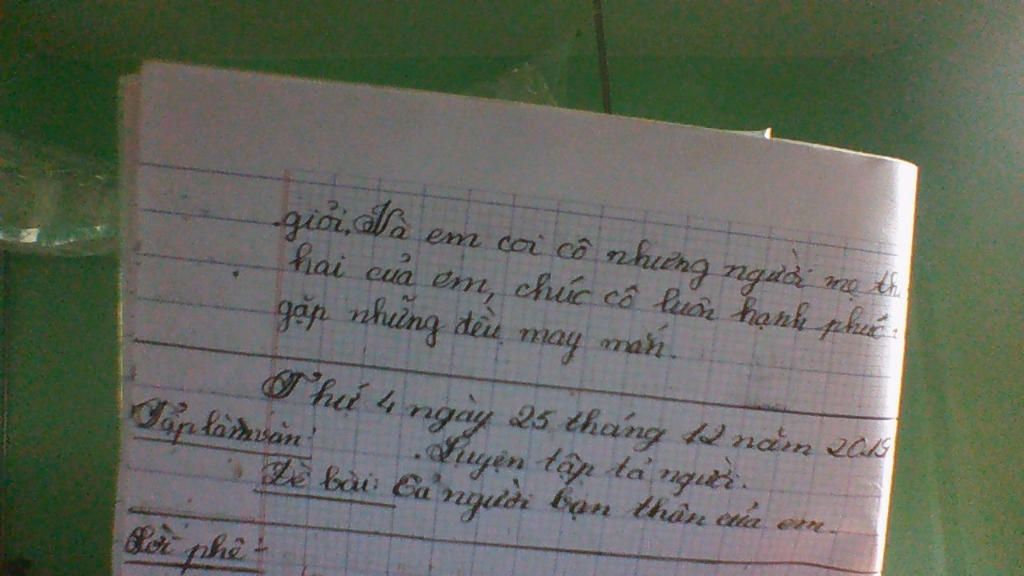 giỏi. Và em coi cô nhưng người mẹ th
hai của em, chúc cô luôn hạnh phúc
gặp những đều may mắn.
Thứ 4 ngày 25 tháng 12 năm 2019
Tập làm văn:
Luyện tập tả người.
Đề bài: Tả người bạn thân của em.
Lời phê: